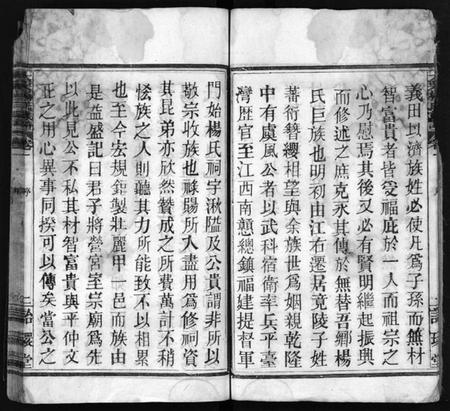 義田以濟族姓必使凡為子孫而無材
智富貴者皆受福庇於一人而祖宗之
心乃慰焉其後又必有賢明繼起振興
而修述之庶克永其傳於無替吾鄉楊
氏巨族也明利由江右遷居竟陵子姓
蕃衍簪纓相望與余族世為姻親乾隆
中有虞風公者以武科宿衛率兵平臺
灣歷官至江西南贛總鎮福建提督軍
門始楊氏祠宇湫隘及公貴謂非所以
敬宗收族也祿賜所入盡用為修祠資
其昆弟亦欣然贊成之所費萬計不稍
恡族之人則聽其力所能致不以相累
也至今宏規鉅製壯麗甲一邑而族由
是益盛記曰君子將營宮室宗廟為先
以此見公不私其材智富貴與平仲文
正之用心異事同揆可以傳矣當公之